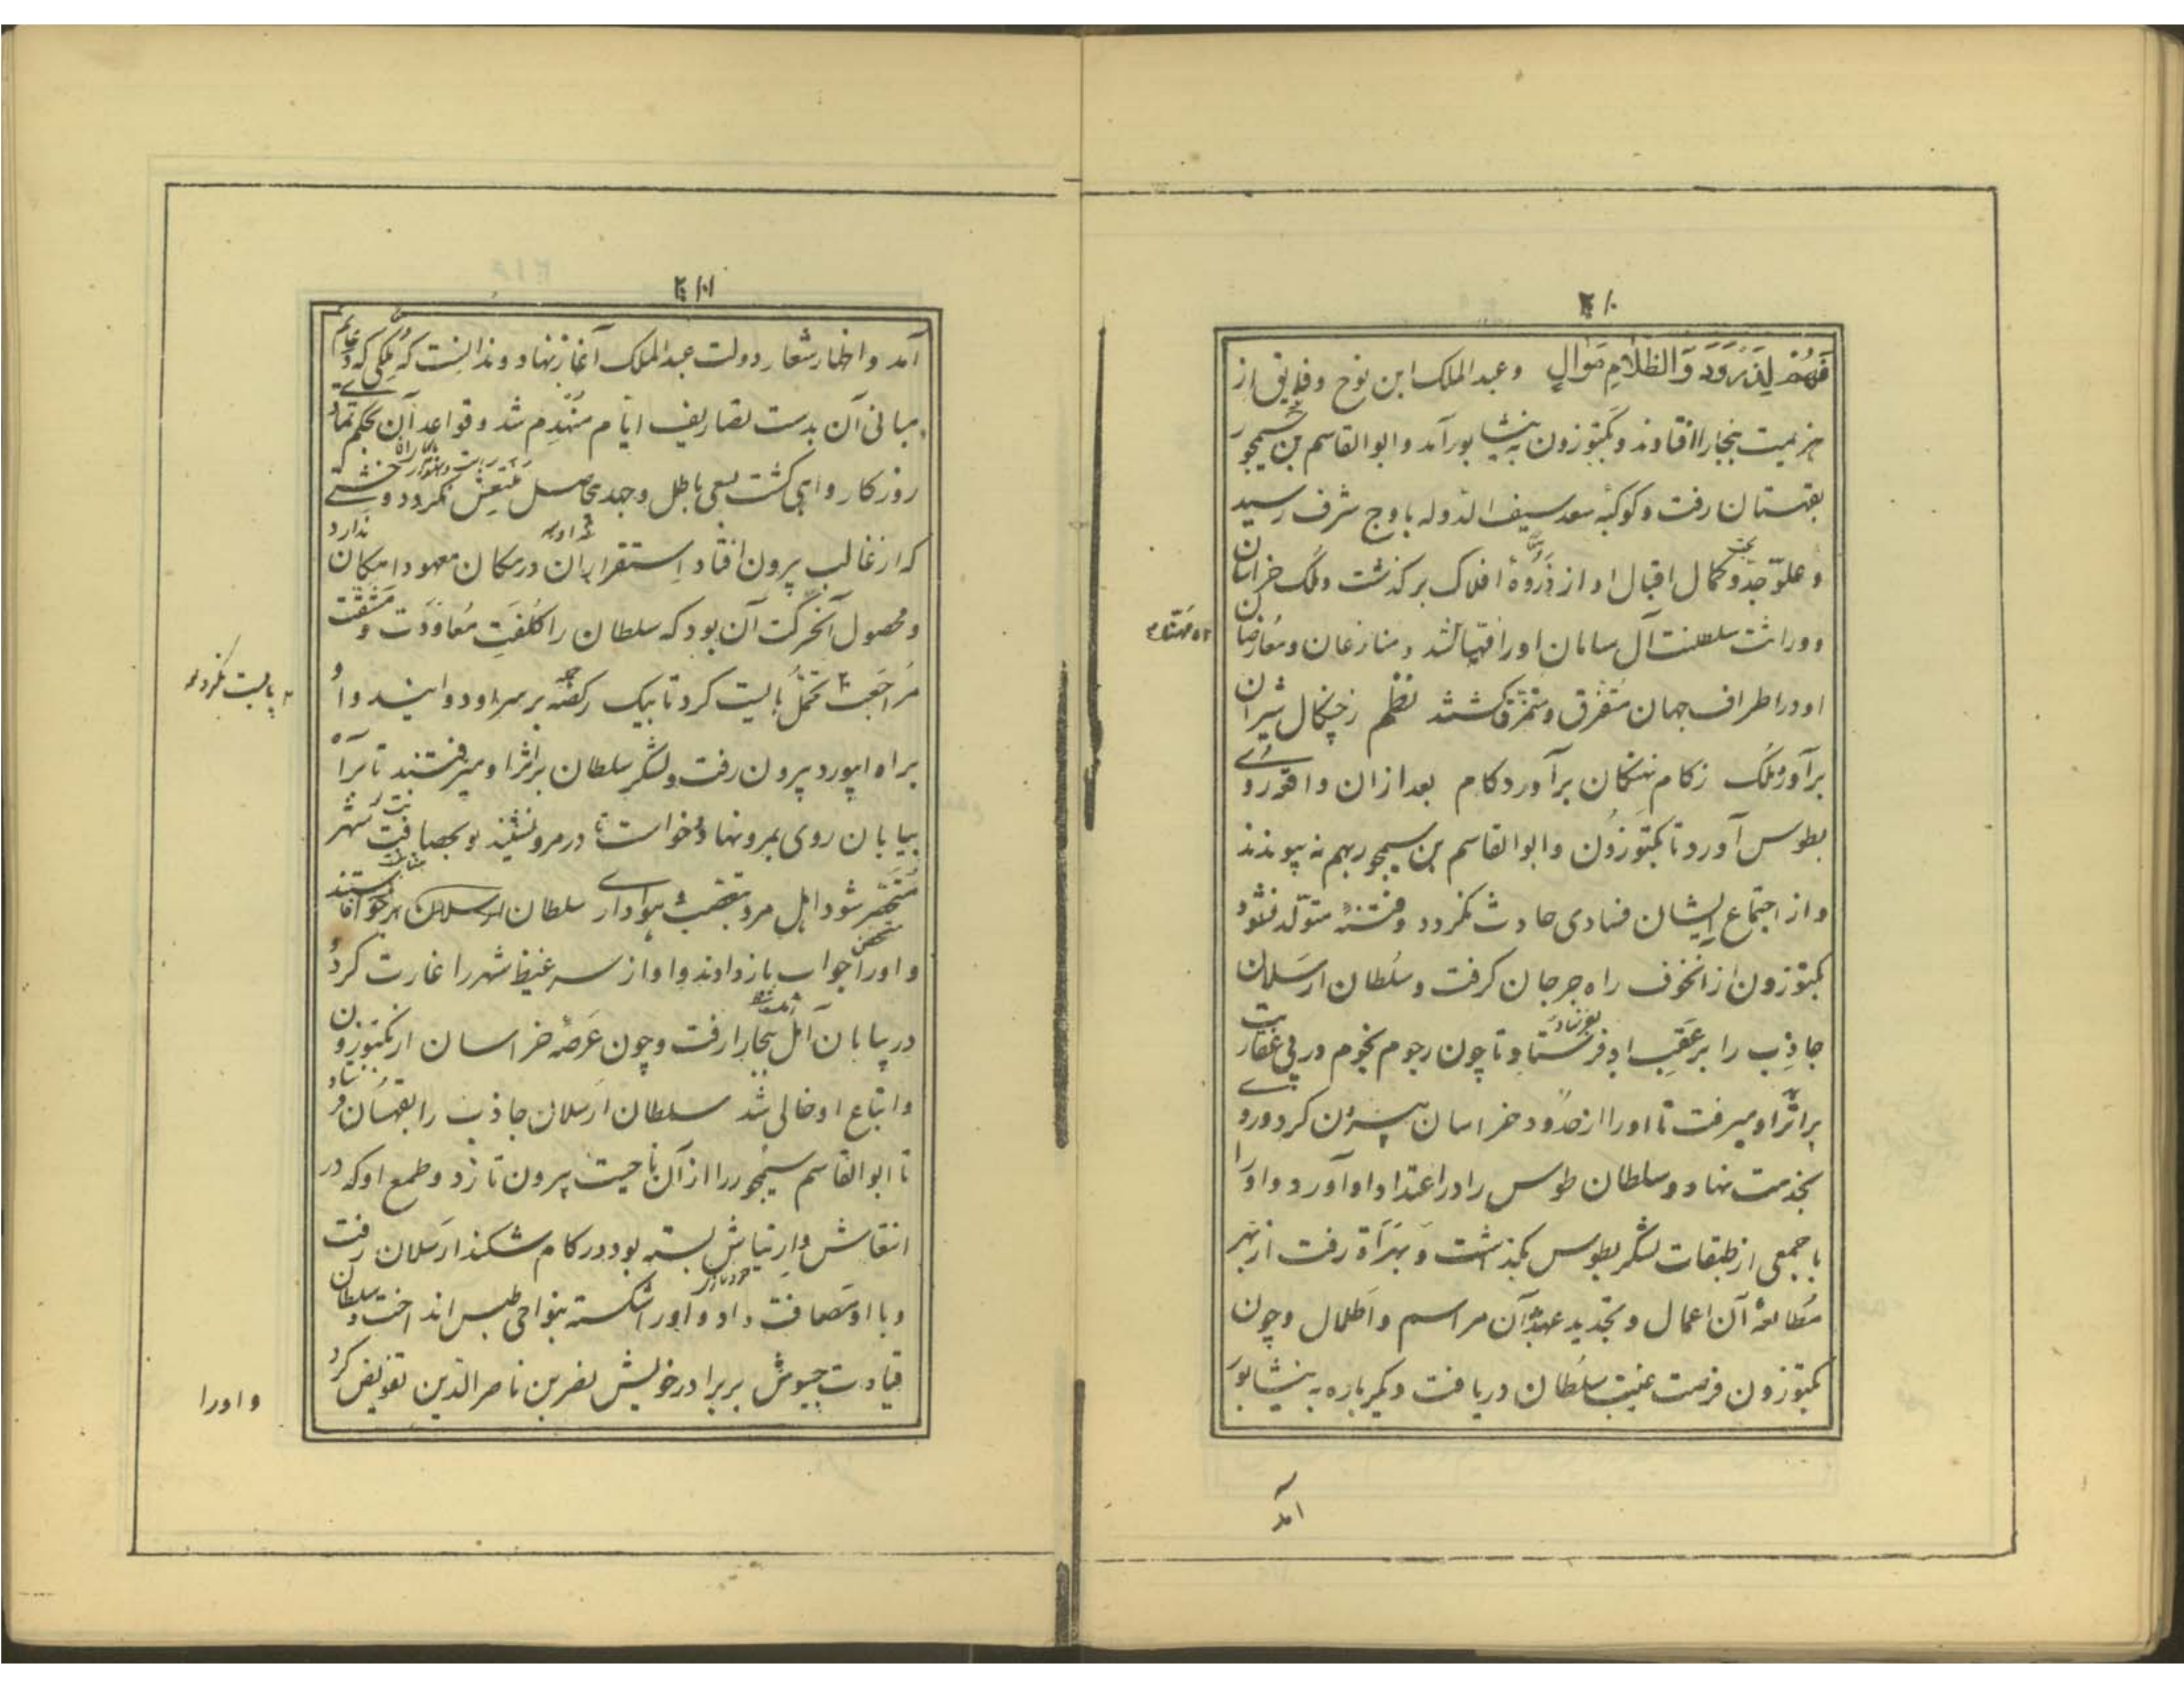 ۲۱۰
فهم لذ برود والظلام موال وعبد الملک ابن نوح و فایق از
هزیمت ببخارا افتادند و بکتوزون به نیشابور آمد و ابوالقاسم بن سیمجور
بقهستان رفت و کوکبه سعد سیف الدوله باوج شرف رسید
و علوّ جدّ و کمال اقبال او از ذَروهٔ افلاک برگذشت و ملک خراسان
و وراثت سلطنت آل سامان او را مهیا شد و منازعان و معارضان
او در اطراف جهان متفرق و متمزق گشتند نظم ز چنگال شیران
برآورد ملک ز کام نهنگان برآورد کام بعد از ان واقعه روی
بطوس آورد تا بکتوزون و ابوالقاسم بن سیمجور بهم نه پیوندند
و از اجتماع ایشان فسادی حادث نکردد و فتنهٔ متولد نشود
بکتوزون از آنخوف راه جرجان کرفت و سلطان ارسلان
جاذب را بر عَقِب او فرستاد تا چون رجوم نجوم در پی عفاریت
بر اثر او میرفت تا او را از حدود خراسان بیرون کرد و روی
بخدمت نهاد و سلطان طوس را در اعتداد او آورد و او را
با جمعی از طبقات لشکر بطوس بگذاشت و بهَراة رفت از بهر
مطالعهٔ آن اعمال و تجدید عهد آن مراسم و اطلال و چون
بکتوزون فرصت غیبت سلطان دریافت دیکر باره به نیشابور
آمد
۲۱۱
آمد و اظهار شعار دولت عبد الملک آغاز نهاد و ندانست که ملکی که دعایم
مبانی آن بدست تصاریف ایام منهدم شد و قواعد آن بحکم تمادی
روزکار واهی کشت بسعی باطل و جهد بیحاصل منتعش نکردد و خشتی
که از قالب بیرون افتاد استقرار آن در مکان معهود امکان ندارد
و محصول آنحرکت آن بود که سلطان را کلفت معاودت و مشقت
مراجعت تحمل بایست کرد تا بیک رکضه بر سر او دوانید و او
براه ابیورد بیرون رفت و لشکر سلطان بر اثر او میرفتند تا براه
بیابان روی بمرو نهاد و خواست تا در مرو نشیند و بحصانت شهر
متحصن شود اهل مرو بتعصب هوادار سلطان ارسلان برخواستند
و او را جواب باز دادند و او از سر غیظ شهر را غارت کرد و
در بیابان آمل ببخارا رفت و چون عرصهٔ خراسان از بکتوزون
و اتباع او خالی شد سلطان ارسلان جاذب را بقهستان فرستاد
تا ابوالقاسم سیمجور را از آن ناحیت بیرون تازد و طمع او که در
انتعاش و ارتیاش بسته بود در کام شکند ارسلان رفت
و با او مصاف داد و او را شکسته بنواحی طبس انداخت و سلطان
قیادت جیوش بر برادر خویش نصر بن ناصر الدین تفویض کرد
و اورا